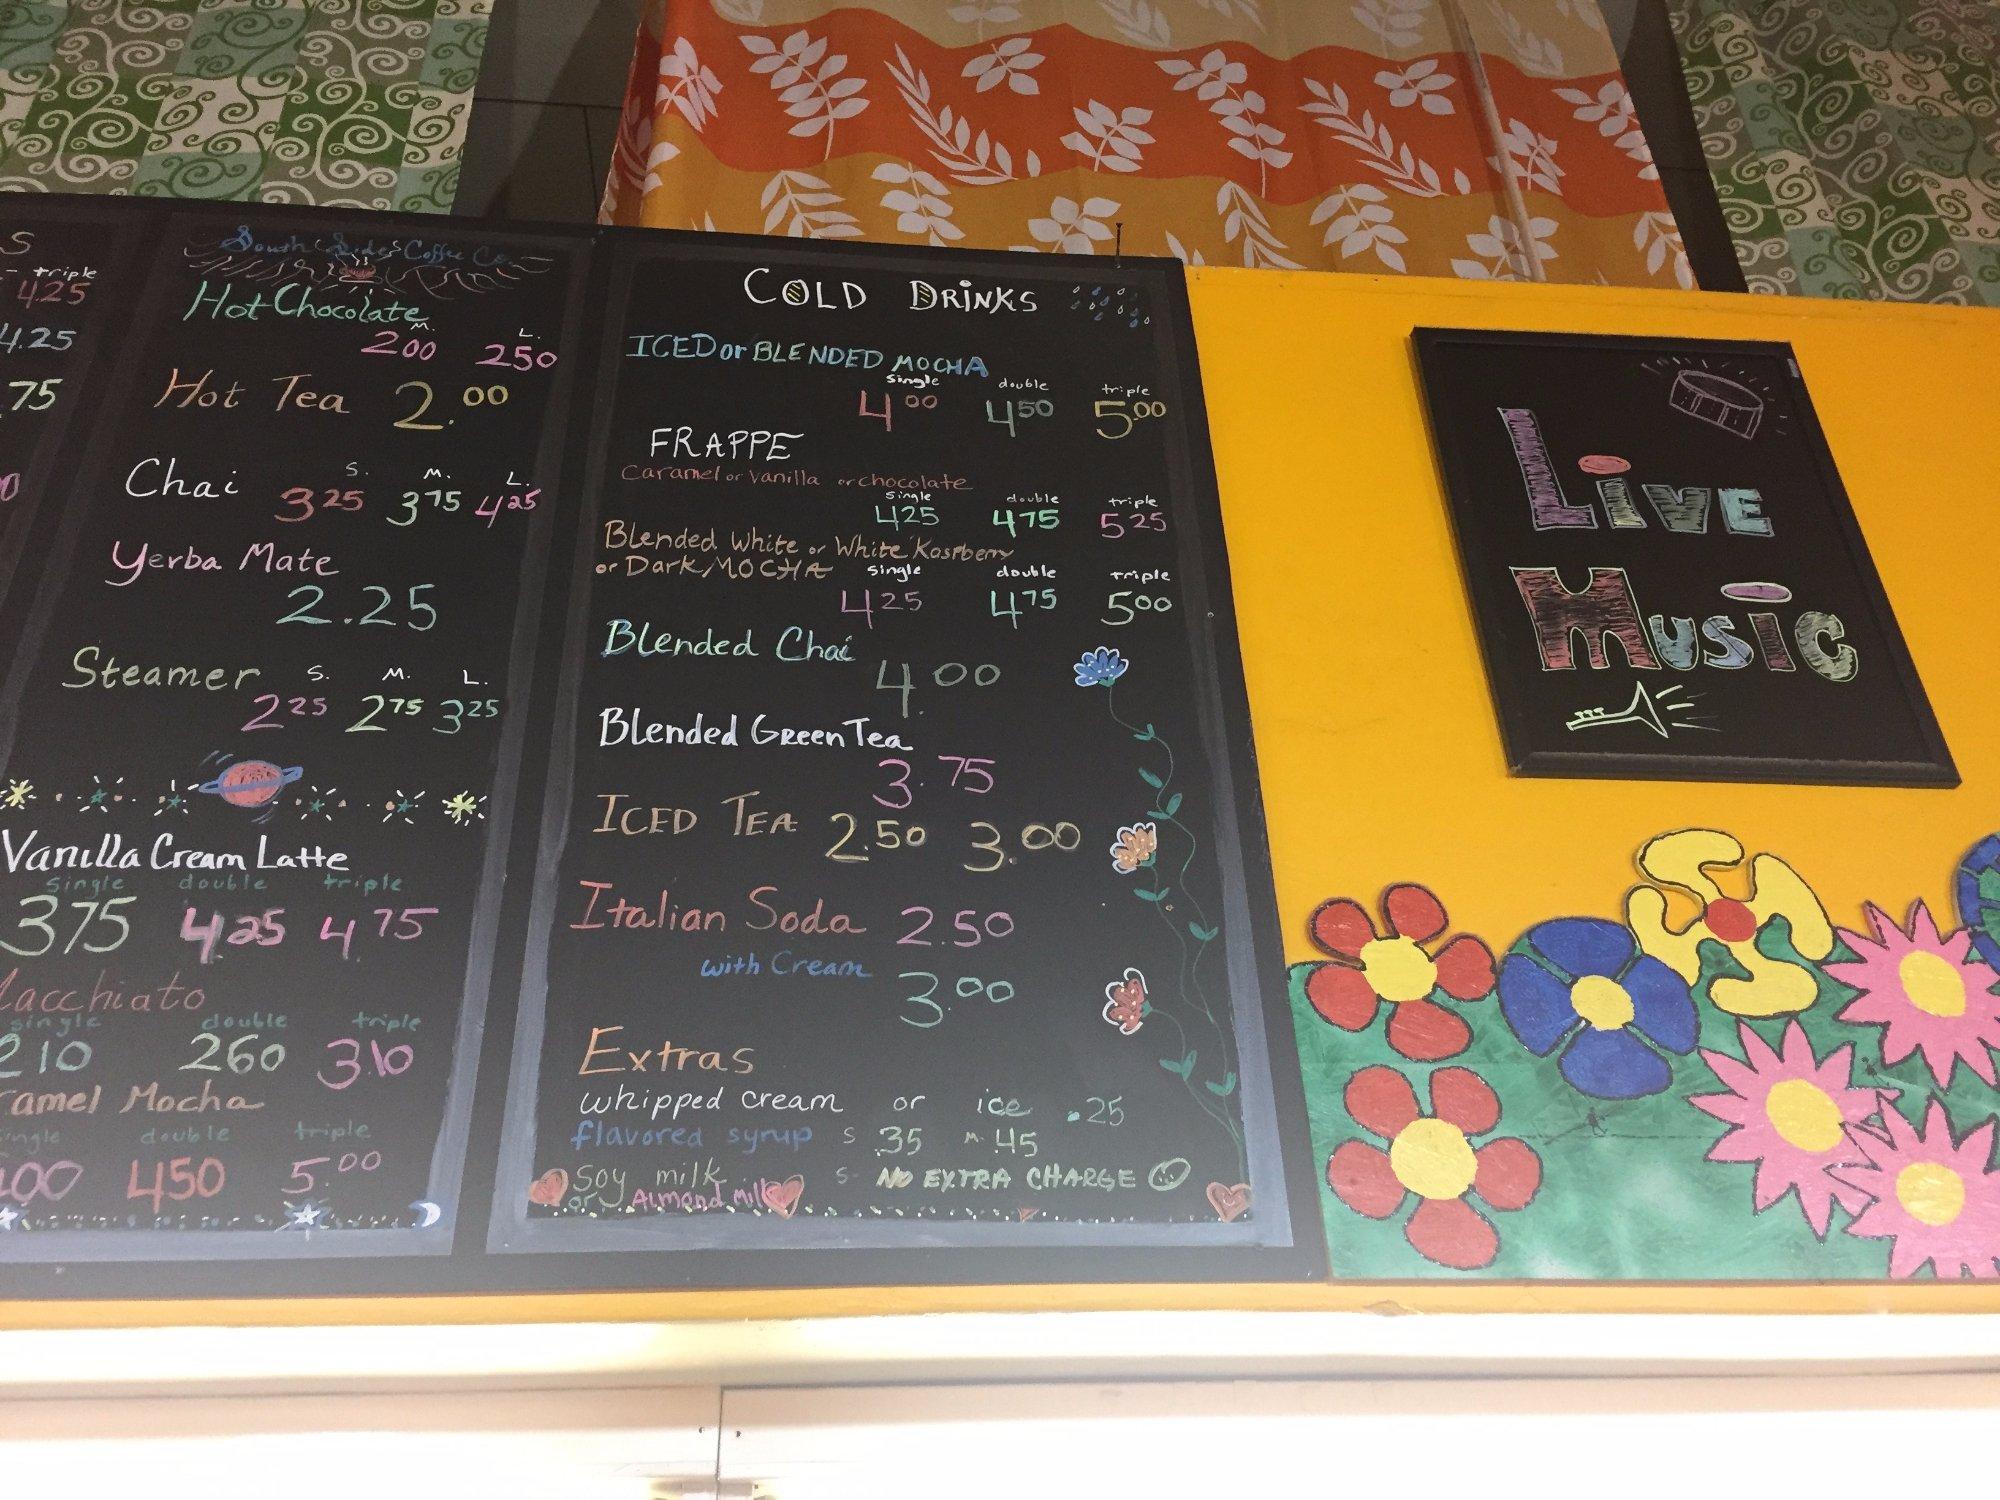 S
triple
4.25
4.25
.75
0
South Side Coffee Co.
Hot Chocolate
M. L.
200 250
Hot Tea 2.00
Chai S. M. L.
325 375 425
Yerba Mate
2.25
Steamer S. M. L.
225 275 325
Vanilla Cream Latte
single double triple
375 425 475
acchiato
single double triple
210 260 3.10
ramel Mocha
ingle double triple
400 450 5.00
COLD DRINKS
ICED or BLENDED MOCHA
single double triple
400 450 5.00
FRAPPE
Caramel or Vanilla or chocolate
single double triple
425 475 525
Blended White or White Raspberry
or Dark MOCHA single double triple
425 475 500
Blended Chai
4.00
Blended Green Tea
3.75
ICED TEA 2.50 3.00
Italian Soda 2.50
with Cream 3.00
Extras
whipped cream or ice .25
flavored syrup S .35 M. .45
Soy milk S- NO EXTRA CHARGE
or Almond Milk
Live
Music